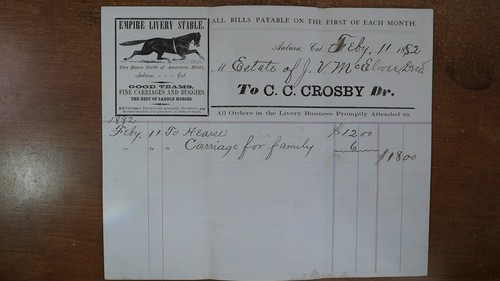 EMPIRE LIVERY STABLE.
Two Doors North of American Hotel,
Auburn, Cal.
GOOD TEAMS,
FINE CARRIAGES AND BUGGIES
THE BEST OF SADDLE HORSES
ALL BILLS PAYABLE ON THE FIRST OF EACH MONTH.
Auburn, Cal Feby. 11 1882
M Estate of J. V. McElwee, Decd
To C. C. CROSBY Dr.
All Orders in the Livery Business Promptly Attended to.
1882
Feby 11 To Hearse $12.00
" " " Carriage for family 6
$18.00